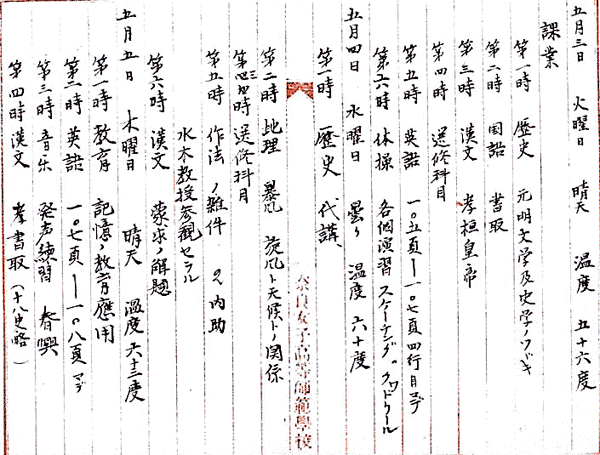 五月三日 火曜日 晴天 温度 五十六度
課業
第一時 歴史 元明文学及史学ノツヾキ
第二時 国語 書取
第三時 漢文 孝桓皇帝
第四時 選修科目
第五時 英語 一〇五頁―一〇七頁四行目マデ
第六時 体操 各個演習 スケーチング。クワドリール
五月四日 水曜日 曇リ 温度 六十度
第一時 歴史 代講、
第二時 地理 暴風 旋風ト天候トノ関係
第三四時 選修科目
第五時 作法ノ雑件 内助
水木教授参観セラル
第六時 漢文 蒙求ノ解題
五月五日 木曜日 晴天 温度 六十三度
第一時 教育 記憶ノ教育應用
第二時 英語 一〇七頁―一〇八頁マデ
第三時 音楽 発声練習 春興
第四時 漢文 孝書取(十八史略)
奈良女子高等師範學校